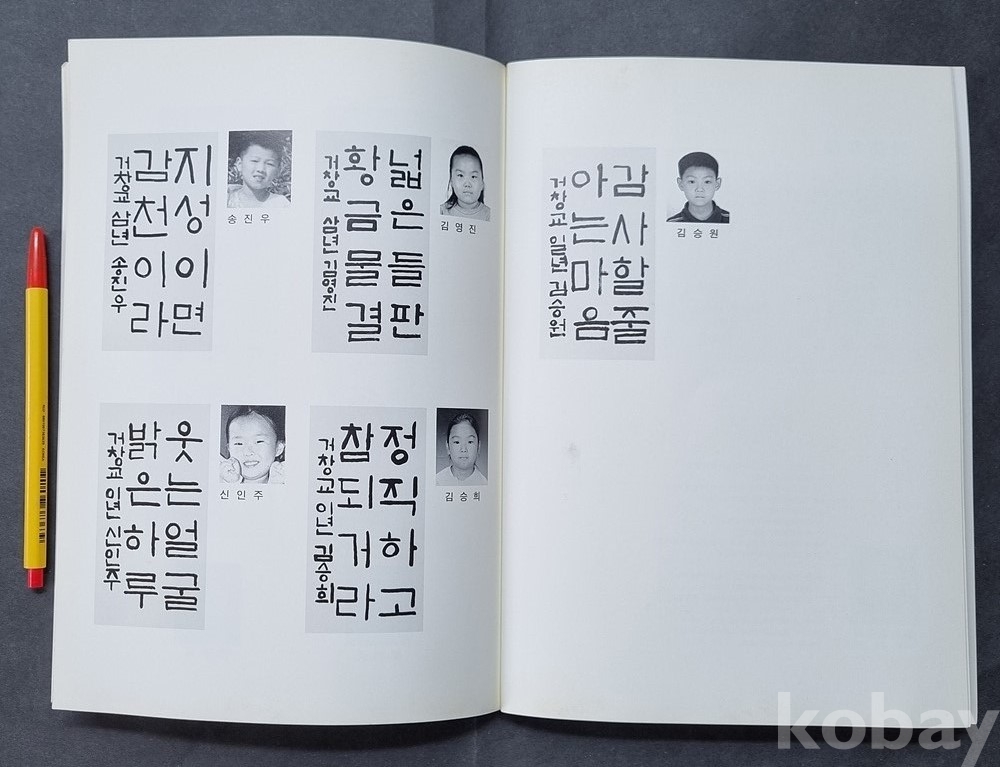 지성이면
감천이라
거창교 삼년 송진우
송진우
넓은들판
황금물결
거창교 삼년 김영진
김영진
웃는얼굴
밝은하루
거창교 이년 신인주
신인주
정직하고
참되거라
거창교 이년 김승희
김승희
감사할줄
아는마음
거창교 일년 김승원
김승원
kobay